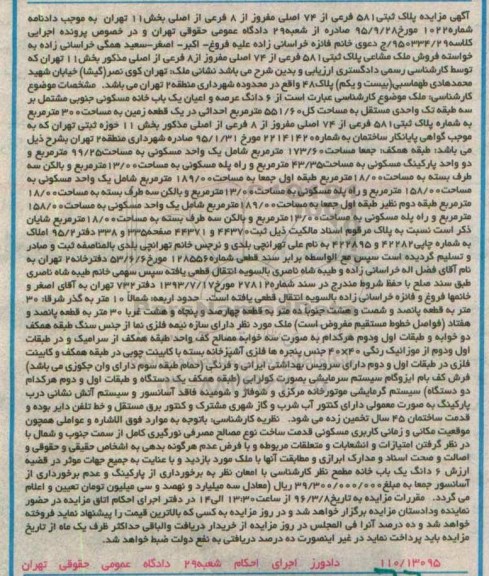 آگهی مزایده پلاک ثبتی۵۸۱ فرعی از ۷۴ اصلی مفروز از ۸ فرعی از اصلی بخش۱۱ تهران به موجب دادنامه
شماره۱۰۲۲ مورخ۹۵/۹/۲۸ صادره از شعبه۲۹ دادگاه عمومی حقوقی تهران و در خصوص پرونده اجرایی
کلاسه۹۵۰۳۳۴/۲۹ج دعوی خانم فائزه خراسانی زاده علیه فروغ- اکبر- اصغر-سعید همگی خراسانی زاده به
خواسته فروش ملک مشاعی پلاک ثبتی۵۸۱ فرعی از ۷۴ اصلی مفروز از۸ فرعی از اصلی مذکور بخش۱۱ تهران که
توسط کارشناسی رسمی دادگستری ارزیابی و بدین شرح می باشد نشانی ملک: تهران کوی نصر(گیشا) خیابان شهید
محمدهادی طهماسبی(بیست و یکم) پلاک۴۸ واقع در محدوده شهرداری منطقه۲ تهران می باشد. مشخصات موضوع
کارشناسی: ملک موضوع کارشناسی عبارت است از ۶ دانگ عرصه و اعیان یک باب خانه مسکونی جنوبی مشتمل بر
سه طبقه تک واحدی مستقل به مساحت کل ۵۵۱/۶۰ مترمربع احداثی در یک قطعه زمین به مساحت۳۰۰ مترمربع
به شماره پلاک ثبتی۵۸۱ فرعی از ۷۴ اصلی مفروز از ۸ فرعی از اصلی مذکور بخش ۱۱ حوزه ثبتی تهران که به
موجب گواهی پایانکار ساختمان به شماره۲۲۱۴۱۴۲۰ مورخ ۹۵/۱/۳۱ صادره شهرداری منطقه۲ تهران بشرح ذیل
می باشد: طبقه همکف: جمعا مساحت۱۷۳/۶۰ مترمربع شامل یک واحد مسکونی به مساحت۹۹/۲۵ مترمربع و
دو واحد پارکینگ مسکونی به مساحت۴۳/۳۵ مترمربع و راه پله مسکونی به مساحت۱۳/۰۰مترمربع و بالکن سه
طرف بسته به مساحت۱۸/۰۰ مترمربع طبقه اول جمعا به مساحت ۱۸۹/۰۰ مترمربع شامل یک واحد مسکونی به
مساحت۱۵۸/۰۰ مترمربع و راه پله مسکونی به مساحت۱۳/۰۰مترمربع و بالکن سه طرف بسته به مساحت۱۸/۰۰
مترمربع طبقه دوم نظیر طبقه اول جمعا به مساحت۱۸۹/۰۰مترمربع شامل یک واحد مسکونی به مساحت۱۵۸/۰۰
مترمربع و راه پله مسکونی به مساحت۱۳/۰۰مترمربع و بالکن سه طرف بسته به مساحت۱۸/۰۰مترمربع شایان
ذکر است نسبت به پلاک مرقوم اسناد مالکیت ذیل ثبت۴۴۳۷۰ و ۴۴۳۷۱ صفحه۳۳۵ و ۳۳۸ دفتر۹۵/۲ املاک
به شماره چاپی۴۲۲۸۲ و ۴۲۲۸۹۵ به نام علی تهرانچی بلدی و نرجس خانم تهرانچی بلدی بالمناصفه ثبت و صادر
و تسلیم گردیده است سپس مع الواسطه برابر سند قطعی شماره۱۲۸۵۵۶ مورخ۵۳/۶/۶ دفترخانه۲ تهران به
نام آقای فضل اله خراسانی زاده و طیبه شاه ناصری بالسویه انتقال قطعی یافته سپس سهمی خانم طیبه شاه ناصری
طبق سند صلح با حفظ شروط مندرج در سند شماره۲۷۸۱۲ مورخ۱۳۹۳/۷/۱۷ دفتر۷۳۲ تهران به آقای اصغر و
خانمها فروغ و فائزه خراسانی زاده بالسویه انتقال قطعی یافته است. حدود اربعه: شمالاً ۱۰ متر به گذر شرقاً: ۳۰
متر به قطعه پانصد و شصت و هشت جنوباً ده متر به قطعه چهارصد و پنجاه و هشت غرباً ۳۰ متر به قطعه پانصد و
هفتاد (فواصل خطوط مستقیم مفروض است) ملک مورد نظر دارای سازه نیمه فلزی نما از جنس سنگ طبقه همکف
دو خوابه و طبقات اول ودوم هرکدام به صورت سه خوابه مصالح کف واحد طبقه همکف از سرامیک و در طبقات
اول ودوم از موزائیک رنگی ۴۰×۴۰ جنس پنجره ها فلزی آشپزخانه بسته با کابینت چوبی در طبقه همکف و کابینت
فلزی در طبقات اول و دوم دارای سرویس بهداشتی ایرانی و فرنگی (حمام طبقه سوم دارای وان جکوزی می باشد)
فرش کف بام ایزوگام سیستم سرمایشی بصورت کولرآبی (طبقه همکف یک دستگاه و طبقات اول و دوم هرکدام
دو دستگاه) سیستم گرمایشی موتورخانه مرکزی و شوفاژ و شومینه فاقد آسانسور و سیستم آتش نشانی درب
پارکینگ به صورت معمولی دارای کنتور آب شرب و گاز شهری مشترک و کنتور برق مستقل و خط تلفن دایر بوده و
قدمت ساختمان ۴۵ سال تخمین زده می شود. نظریه کارشناسی: باتوجه به موارد فوق الاشاره و عواملی همچون
موقعیت مکانی و زمانی کاربری مسکونی قدمت ساخت نوع مصالح مصرفی نورگیری کامل از سمت جنوب و شمال با
در نظر گرفتن امتیازات و انشعابات و متعلقات مربوطه و با فرض عدم هرگونه بدهی به اشخاص حقیقی و حقوقی و
اصالت و صحت اسناد و مدارک ابرازی و مطابقت آنها با ملک مورد بازدید و با عنایت به جمیع جهات موثر در قضیه
ارزش ۶ دانگ یک باب خانه مطمح نظر کارشناسی با امعان نظر به برخورداری از پارکینگ و عدم برخورداری از
آسانسور جمعا به مبلغ۳۹/۳۰۰/۰۰۰/۰۰۰ ریال (معادل سه میلیارد و نهصد و سی میلیون تومان تعیین و اعلام
می گردد. مقررات مزایده به تاریخ۹۶/۳/۸ از ساعت۱۳:۳۰ الی۱۴ در دفتر اجرای احکام اتاق مزایده در حضور
نماینده ودادستان مزایده برگزار خواهد شد و در روز مزایده به کسی که بالاترین قیمت را پیشنهاد نماید فروخته
خواهد شد و ده درصد آنرا فی المجلس در روز مزایده از خریدار دریافت والباقی حداکثر ظرف یک ماه از تاریخ
مزایده باید پرداخت نماید در غیر اینصورت ده درصد دریافتی به نفع دولت ضبط خواهد شد.
۱۱۰/۱۳۰۹۵ دادورز اجرای احکام شعبه۲۹ دادگاه عمومی حقوقی تهران